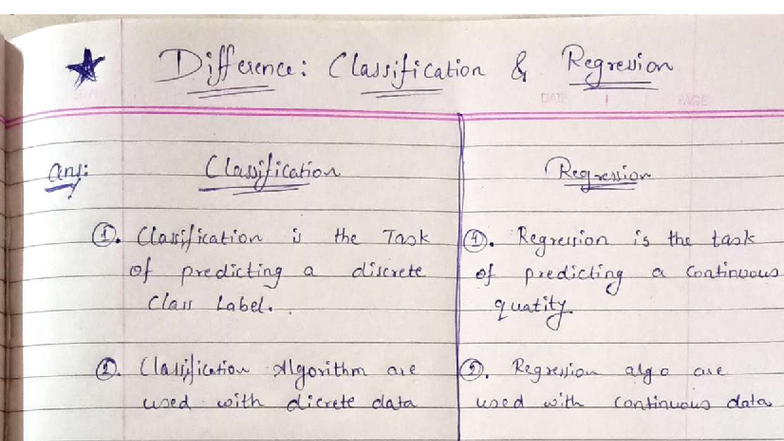 Difference: Classification & Regression
DATE PAGE
Ans: Classification
Regression
①. Classification is the Task
of predicting a discrete
Class Label.
②. Classification Algorithm are
used with dicrete data
①. Regression is the task
of predicting a Continuous
quatity
②. Regression algo are
used with Continuous data